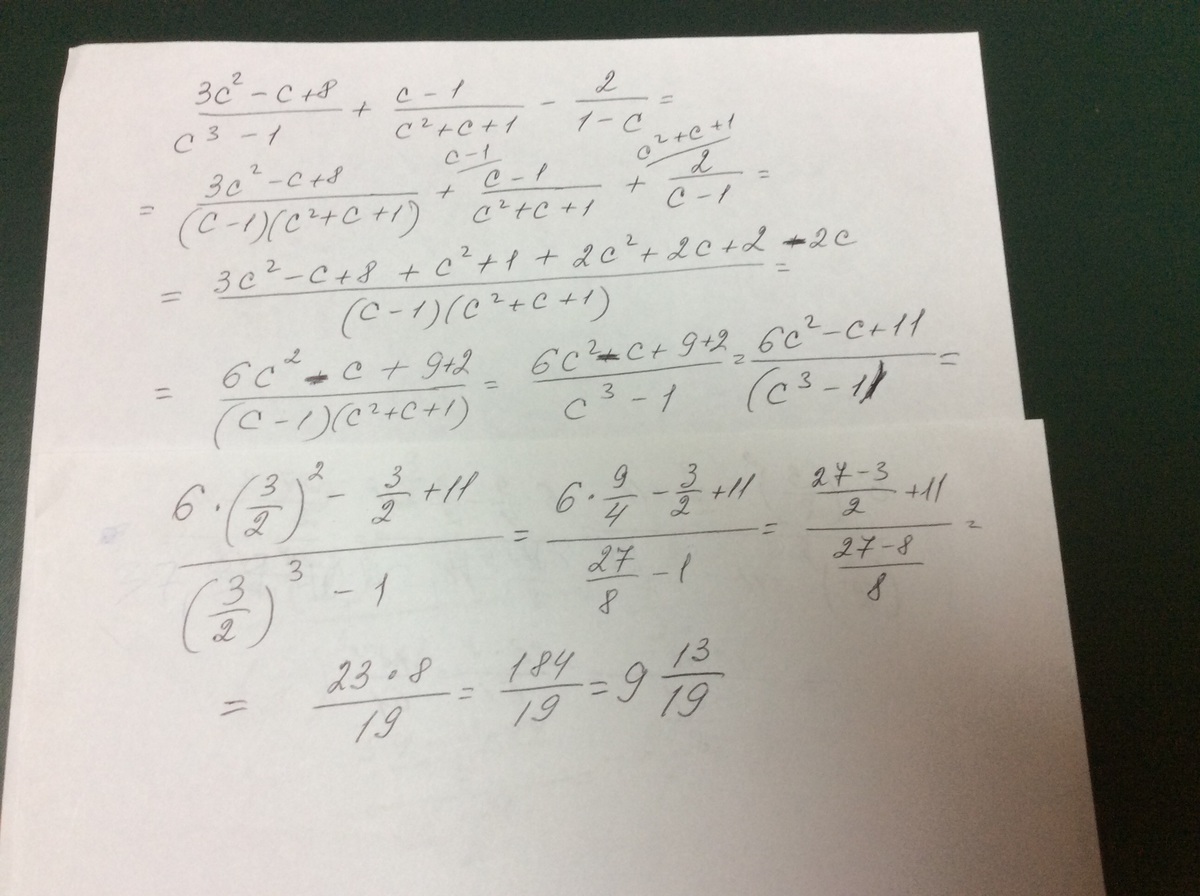 (3c² - c + 8)/(c³ - 1) + (c - 1)/(c² + c + 1) - 2/(1 - c) =
= (3c² - c + 8)/((c - 1)(c² + c + 1)) + (c - 1)/(c² + c + 1) ^(c - 1) + 2/(c - 1) ^(c² + c + 1) =
= (3c² - c + 8 + c² + 1 + 2c² + 2c + 2 - 2c)/((c - 1)(c² + c + 1)) =
= (6c² - c + 9 + 2)/((c - 1)(c² + c + 1)) = (6c² - c + 9 + 2)/(c³ - 1) = (6c² - c + 11)/(c³ - 1) =
(6 · (3/2)² - 3/2 + 11)/((3/2)³ - 1) = (6 · 9/4 - 3/2 + 11)/(27/8 - 1) = ((27 - 3)/2 + 11)/((27 - 8)/8) =
= (23 · 8)/19 = 184/19 = 9 13/19